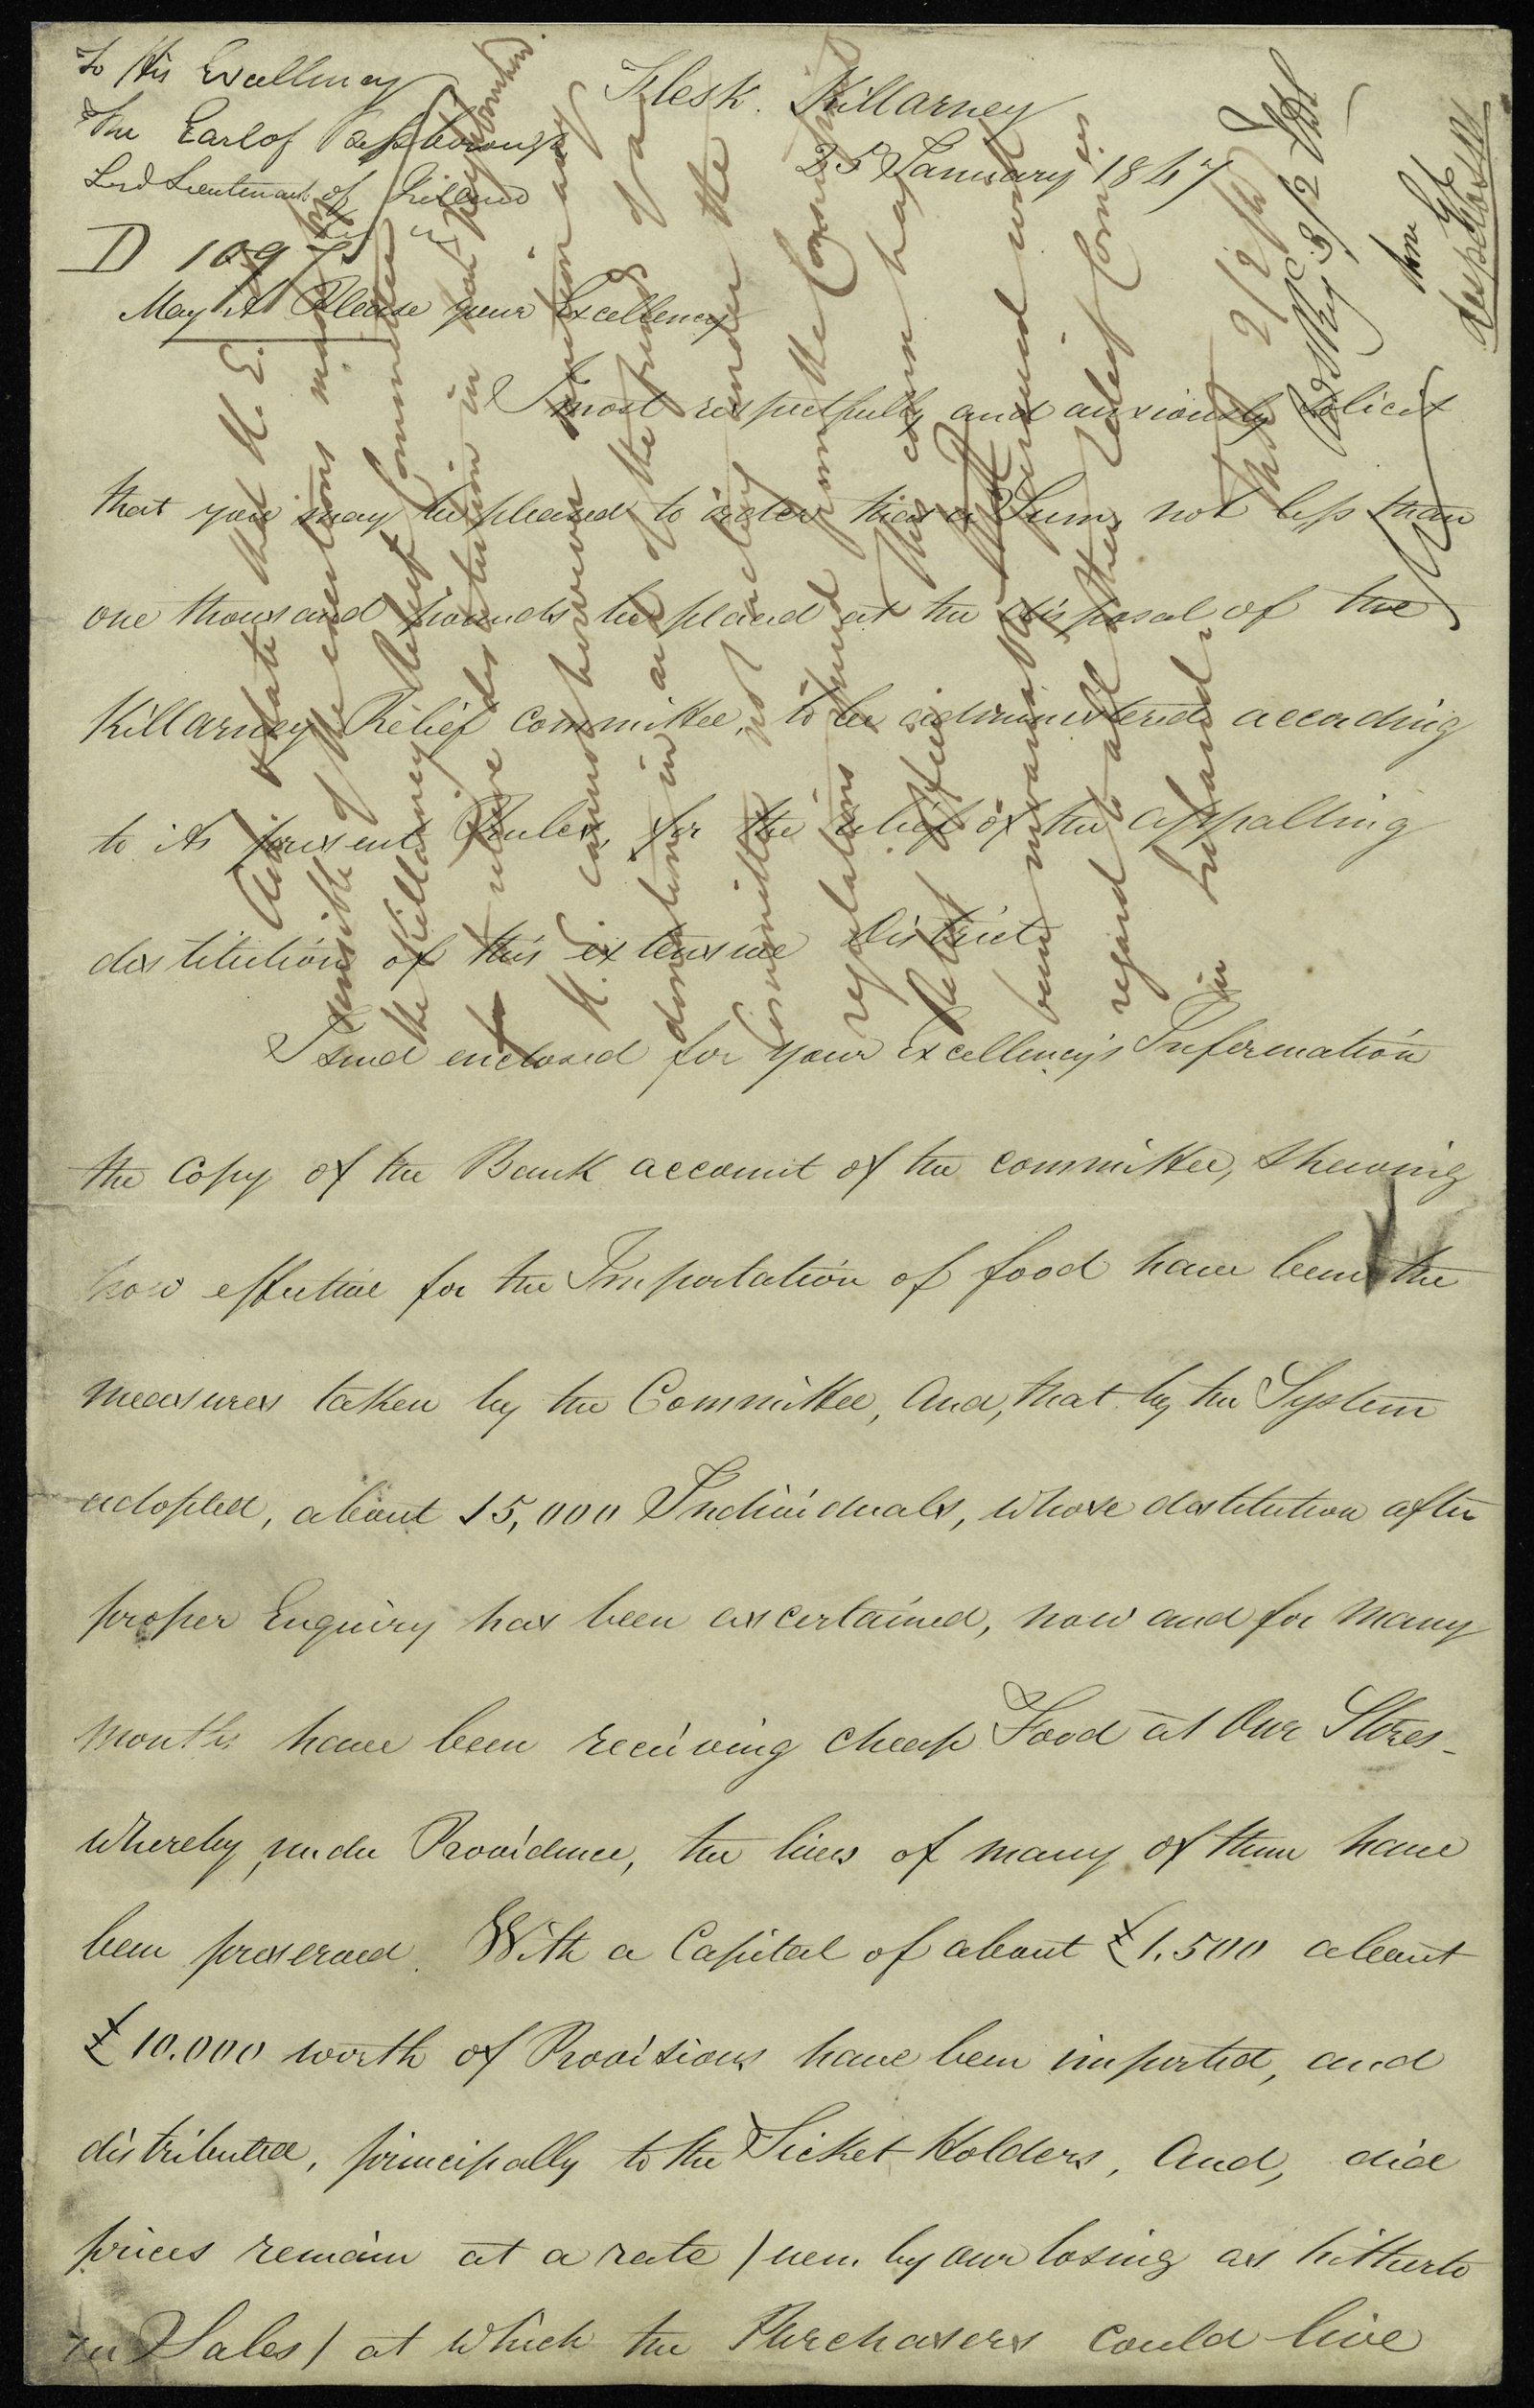 To His Excellency
The Earl of Bessborough
Lord Lieutenant of Ireland
&c &c
D 1097
Flesk. Killarney
25 January 1847
May it Please your Excellency
I most respectfully and anxiously solicit
that you may be pleased to order that a Sum, not less than
one thousand pounds be placed at the disposal of the
Killarney Relief committee, to be administered according
to its present Rules, for the relief of the appalling
destitution of this extensive District
I send enclosed for your Excellency's Information
the Copy of the Bank account of the committee, shewing
how effective for the Importation of food have been the
measures taken by the Committee, and, that by the System
adopted, about 15,000 Individuals, whose destitution after
proper Enquiry has been ascertained, now and for many
months have been receiving cheap Food at Our Stores –
whereby, under Providence, the lives of many of them have
been preserved. With a Capital of about £1,500 about
£10.000 worth of Provisions have been imported, and
distributed, principally to the Ticket Holders, And, did
prices remain at a rate / even by our losing as hitherto
in Sales / at which the Purchasers could live
state that H. E.
sensible of the exertions made by
the Killarney Relief Committee
to relieve destitution in that neighbourhood.
H. E. cannot however sanction any
donation in aid of the funds of a
Committee not acting under the
regulations issued from the Commissariat
Relief Office. This course has
been invariably pursued with
regard to all other Relief Committees
in Ireland.
2/2
3/2